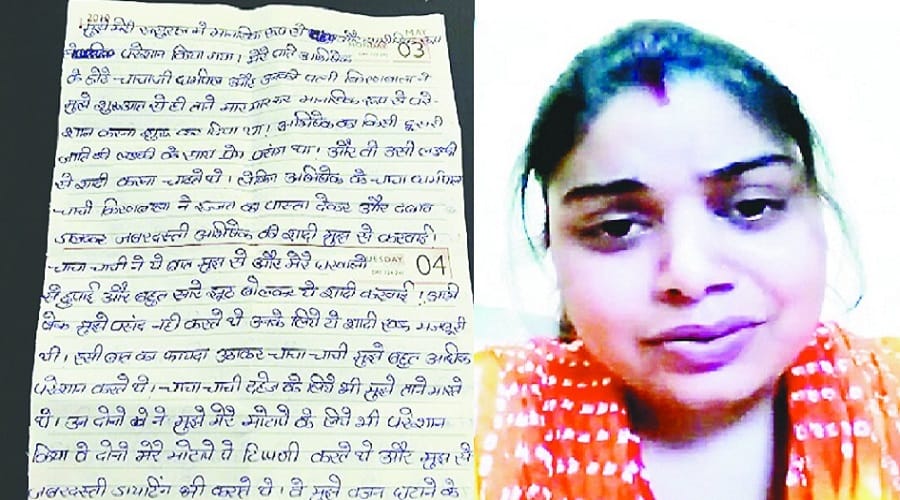 2010
मुझे मेरी ससुराल में मानसिक रूप से और शारीरिक रूप
MAY
MONDAY
03
परेशान किया गया। मेरे पति अभिषेक
के छोटे चाचाजी धर्मपाल और उनकी पत्नी किरणबाला ने
मुझे शुरूआत से ही ताने मार मारकर मानसिक रूप से परे-
शान करना शुरू कर दिया था। अभिषेक का किसी दूसरी
जाति की लड़की के साथ प्रेम प्रसंग था। और वो उसी लड़की
से शादी करना चाहते थे। लेकिन अभिषेक के चाचा धर्मपाल
चाची किरणबाला ने इज्जत का वास्ता देकर और दबाव
डालकर जबरदस्ती अभिषेक की शादी मुझ से करवाई।
चाचा चाची ने ये बात मुझ से और मेरे घरवालो
TUESDAY
04
से छुपाई और बहुत सारे झूठ बोलकर ये शादी करवाई। अभि
षेक मुझे पसंद नही करते थे उनके लिये ये शादी एक मजबूरी
थी। इसी बात का फायदा उठाकर चाचा चाची मुझे बहुत अधिक
परेशान करते थे। चाचा चाची दहेज के लिये भी मुझे ताने मारते
थे। उन दोनो ने मुझे मेरे मोटापे के लिये भी परेशान
किया वे दोनो मेरे मोटापे पे टिप्पणी करते थे और मुझ से
जबरदस्ती डायटिंग भी कराते थे। वे मुझे वजन घटाने के